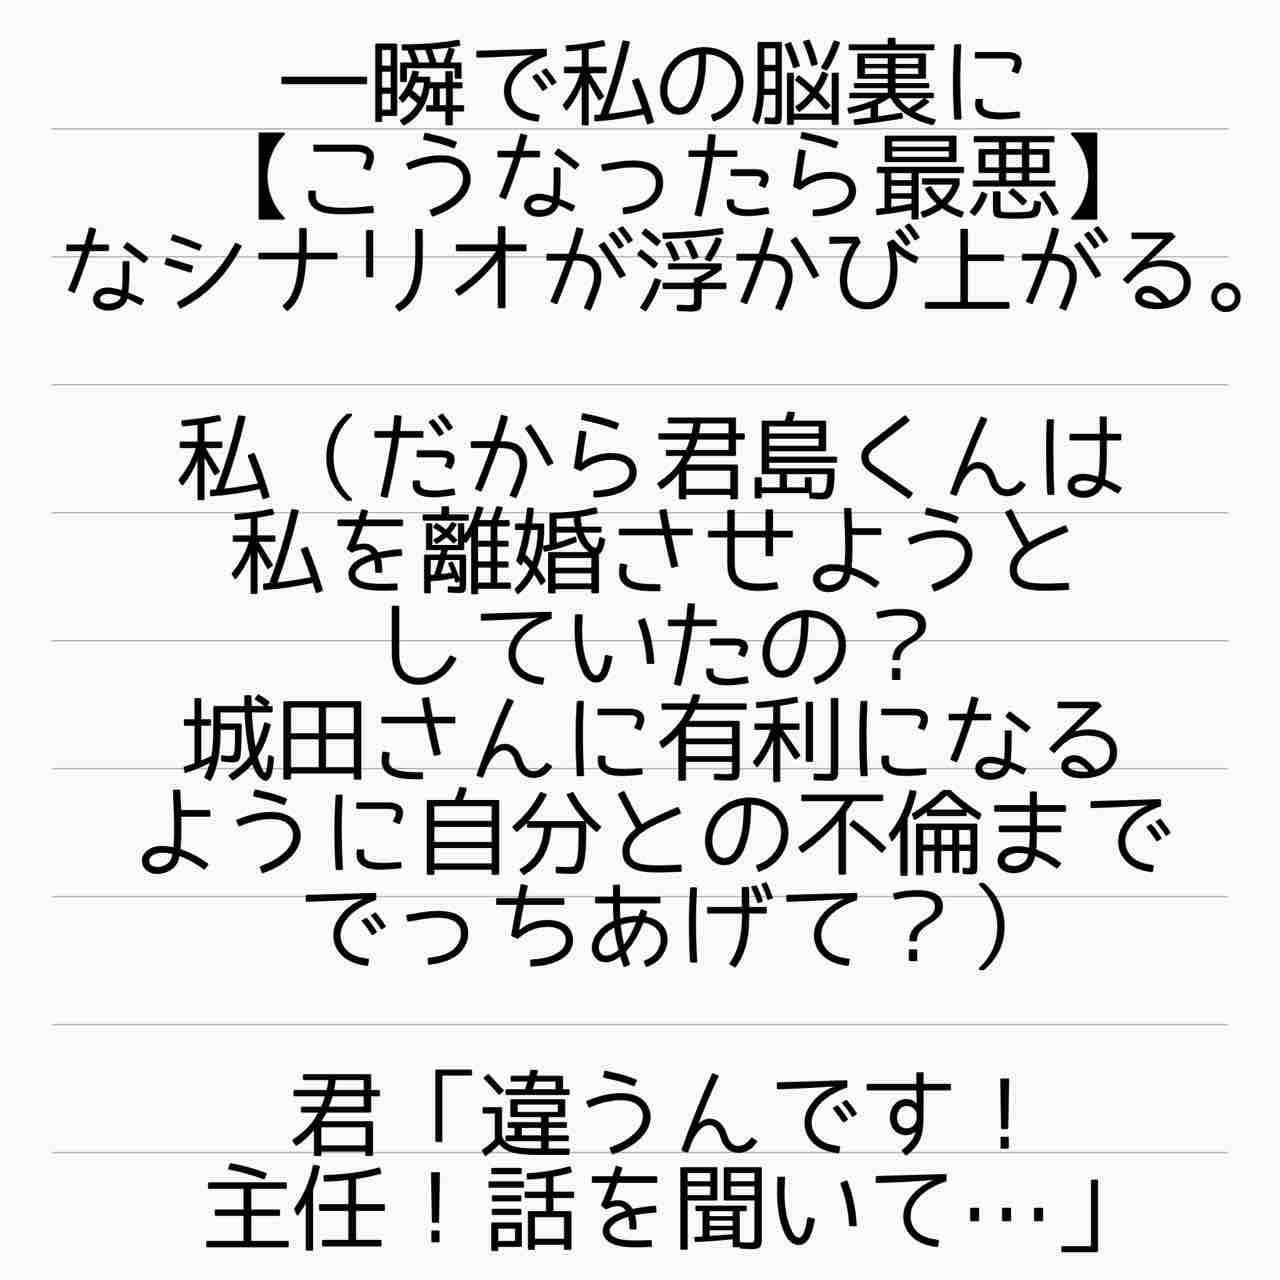 一瞬で私の脳裏に
【こうなったら最悪】
なシナリオが浮かび上がる。
私（だから君島くんは
私を離婚させようと
していたの？
城田さんに有利になる
ように自分との不倫まで
でっちあげて？）
君「違うんです！
主任！話を聞いて…」